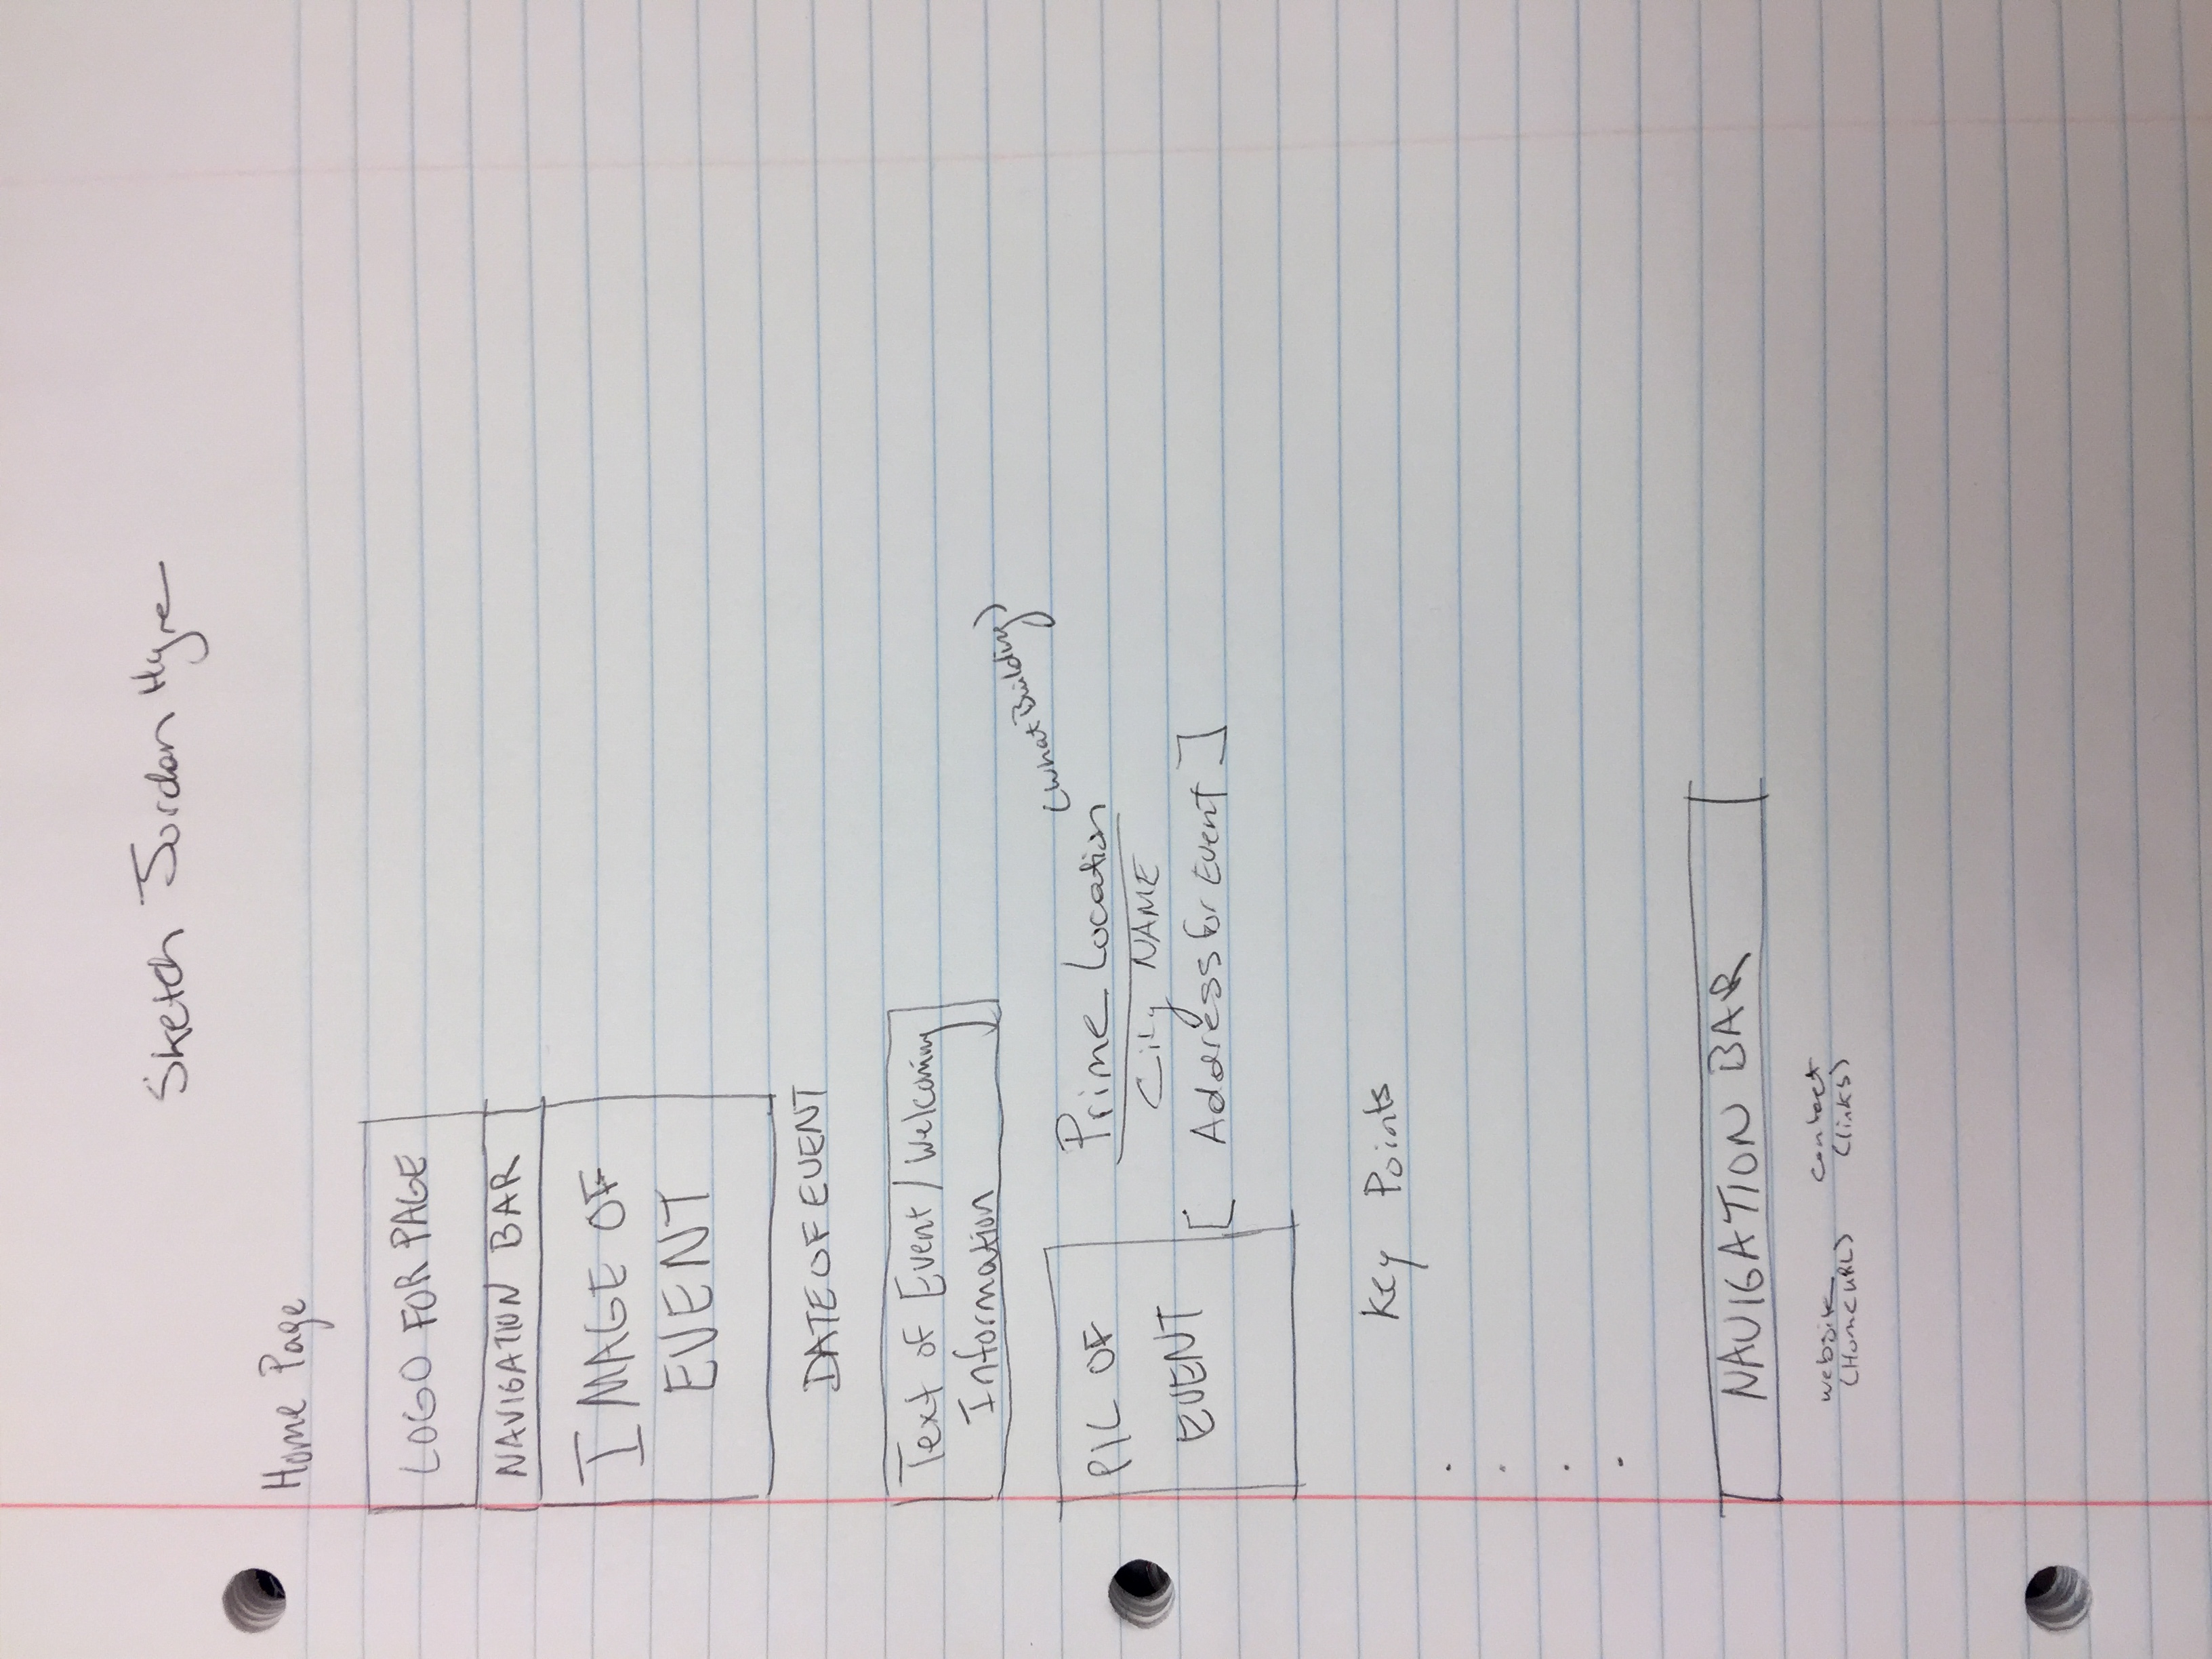 Sketch Jordan Hyre
Home Page
LOGO FOR PAGE
NAVIGATION BAR
IMAGE OF
EVENT
DATE OF EVENT
Text of Event / Welcoming
Information
PIC OF
EVENT
Prime Location (What Building)
City NAME
[ Address for Event ]
Key Points
NAVIGATION BAR
website contact
(Home URL) (links)